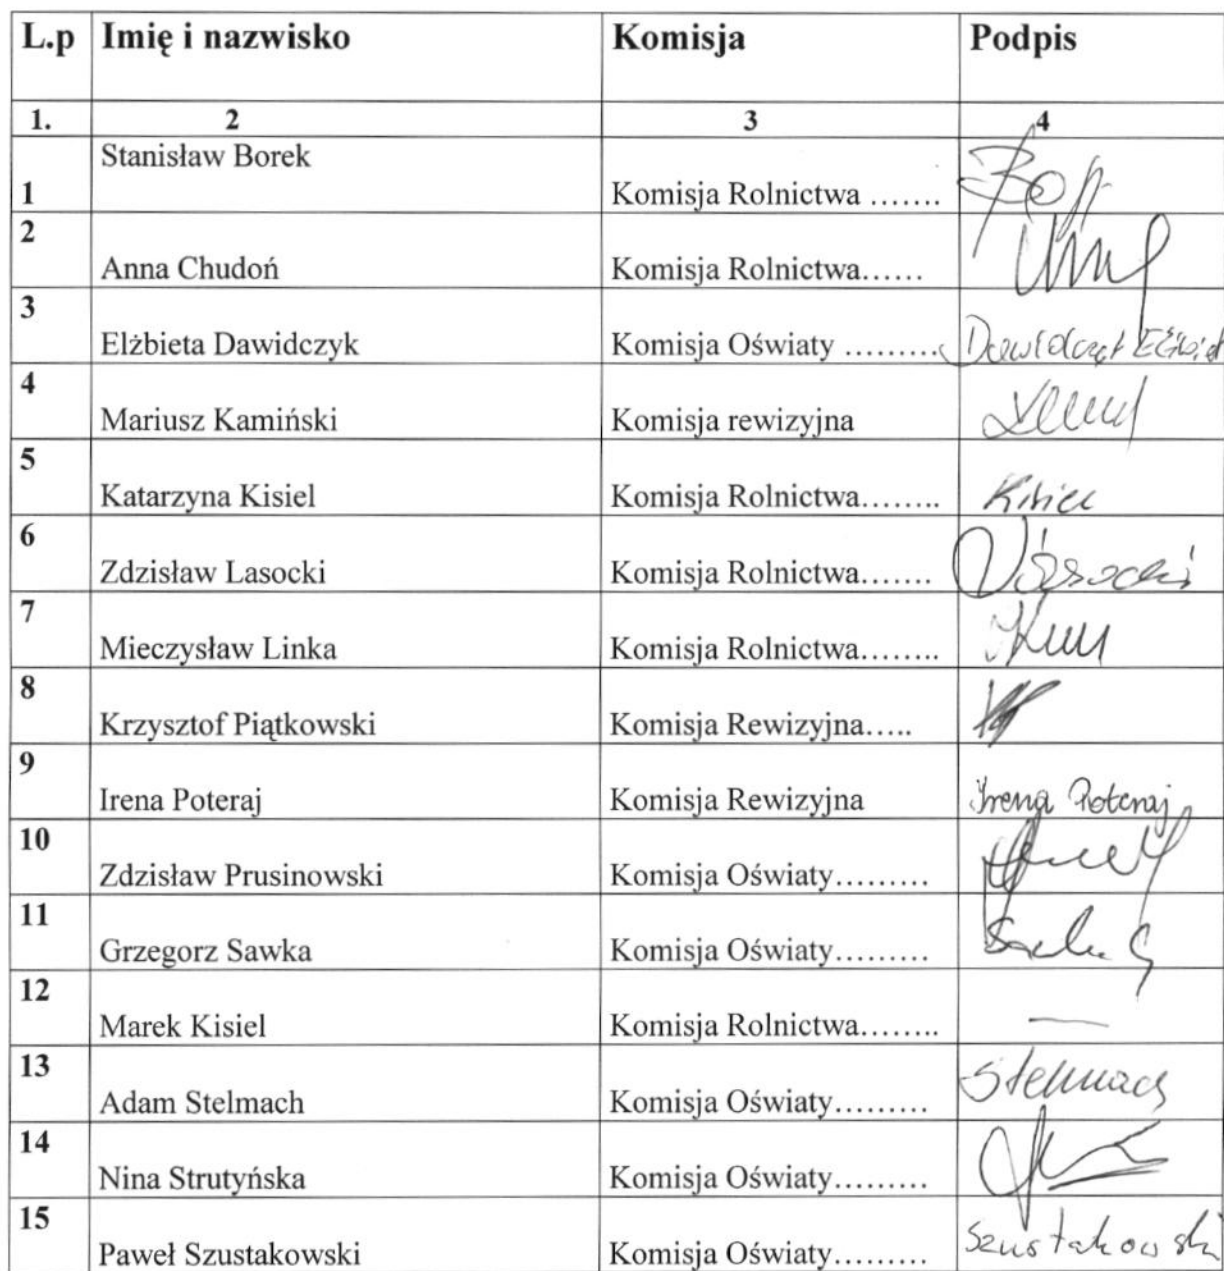 L.p Imię i nazwisko Komisja Podpis
1. 2 3 4
1 Stanisław Borek Komisja Rolnictwa …….
2 Anna Chudoń Komisja Rolnictwa……
3 Elżbieta Dawidczyk Komisja Oświaty ……… Dawidczyk Elżbieta
4 Mariusz Kamiński Komisja rewizyjna
5 Katarzyna Kisiel Komisja Rolnictwa…….. Kisiel
6 Zdzisław Lasocki Komisja Rolnictwa…….
7 Mieczysław Linka Komisja Rolnictwa……..
8 Krzysztof Piątkowski Komisja Rewizyjna…..
9 Irena Poteraj Komisja Rewizyjna Irena Poteraj
10 Zdzisław Prusinowski Komisja Oświaty………
11 Grzegorz Sawka Komisja Oświaty………
12 Marek Kisiel Komisja Rolnictwa…….. —
13 Adam Stelmach Komisja Oświaty……… Stelmach
14 Nina Strutyńska Komisja Oświaty………
15 Paweł Szustakowski Komisja Oświaty……… Szustakowski